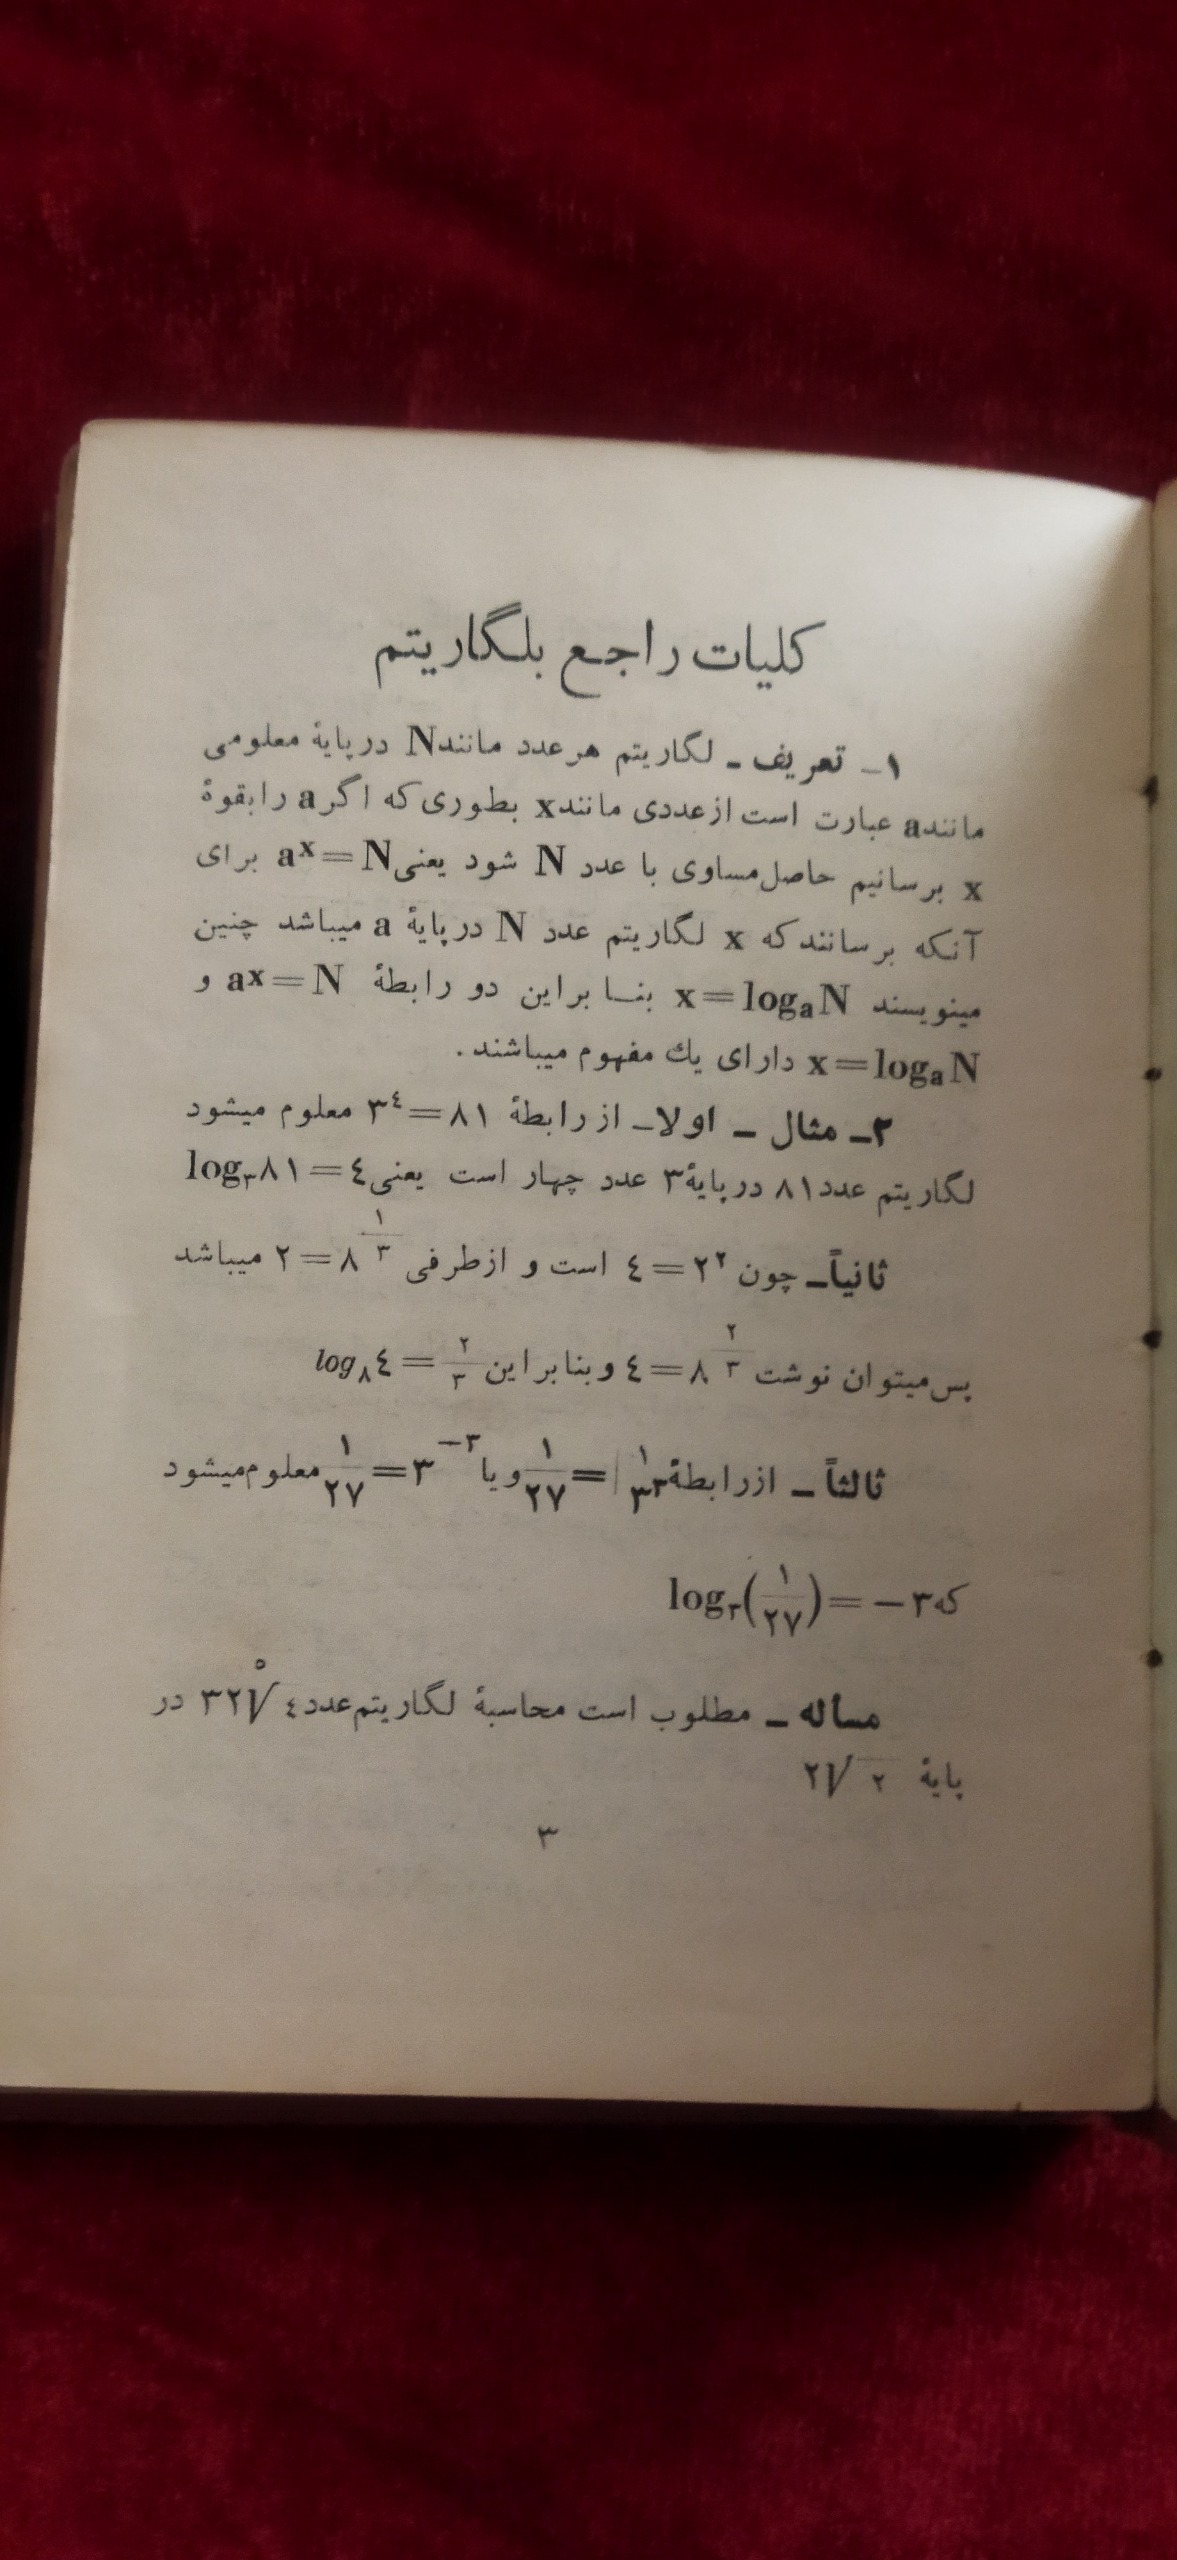 کلیات راجع بلگاریتم
۱- تعریف - لگاریتم هر عدد مانند N در پایهٔ معلومی
مانند a عبارت است از عددی مانند x بطوری که اگر a را بقوهٔ
x برسانیم حاصل مساوی با عدد N شود یعنی aˣ=N برای
آنکه برسانند که x لگاریتم عدد N در پایهٔ a میباشد چنین
مینویسند x=logₐN بنا براین دو رابطهٔ aˣ=N و
x=logₐN دارای یك مفهوم میباشند.
۲- مثال - اولا- از رابطهٔ ۳^٤=۸۱ معلوم میشود
لگاریتم عدد ۸۱ در پایهٔ ۳ عدد چهار است یعنی log۳ ۸۱=٤
ثانیاً- چون ۲^۲=٤ است و از طرفی ۸^(۱/۳)=۲ میباشد
پس میتوان نوشت ۸^(۲/۳)=٤ و بنابراین log۸ ٤=۲/۳
ثالثاً - از رابطهٔ ۱/۳^۳=۱/۲۷ و یا ۳^-۳=۱/۲۷ معلوم میشود
که log۳(۱/۲۷)=-۳
مساله - مطلوب است محاسبهٔ لگاریتم عدد ۳۲ ⁵√٤ در
پایهٔ ۲√۲
۳